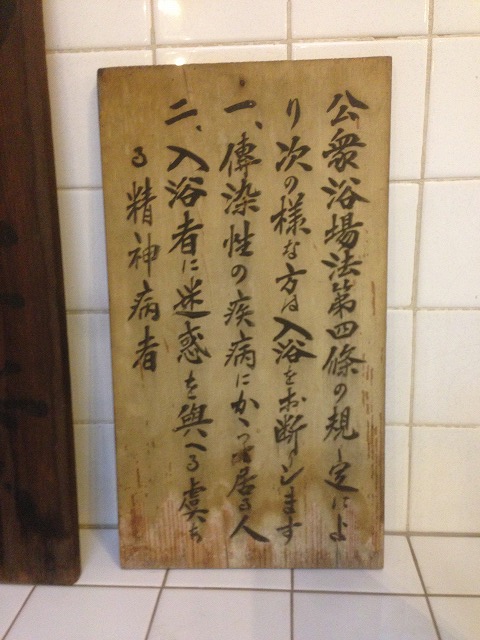 公衆浴場法第四條の規定によ
り次の様な方は入浴をお断りします
一、傳染性の疾病にかゝつて居る人
二、入浴者に迷惑を與へる虞ある精神病者